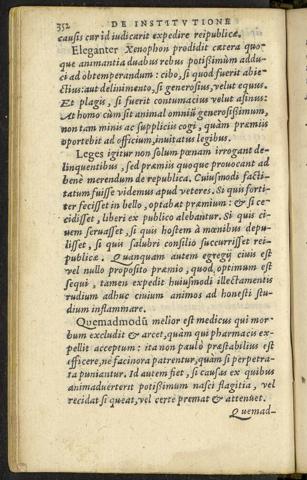 352 DE INSTITVTIONE
causis cur id iudicarit expedire reipublicæ.
Eleganter Xenophon prodidit cætera quo-
que animantia duabus rebus potißimùm addu-
ci ad obtemperandum: cibo, si quod fuerit abie-
ctius: aut delinimento, si generosius, velut equus.
Et plagis, si fuerit contumacius velut asinus:
At homo cùm sit animal omniũ generosißimum,
non tam minis ac suppliciis cogi, quàm præmiis
oportebit ad officium, inuitatus legibus.
Leges igitur non solum pœnam irrogant de-
linquentibus, sed præmiis quoque prouocant ad
benè merendum de republica. Cuiusmodi facti-
tatum fuisse videmus apud veteres. Si quis forti-
ter fecisset in bello, optabat præmium: & si ce-
cidisset, liberi ex publico alebantur. Si quis ci-
uem seruasset, si quis hostem à mœnibus depu-
lisset, si quis salubri consilio succurrisset rei-
publicæ. Quanquam autem egregij ciuis est
vel nullo proposito præmio, quod optimum est
sequi, tamen expedit huiusmodi illectamentis
rudium adhuc ciuium animos ad honesti stu-
dium inflammare.
Quemadmodũ melior est medicus qui mor-
bum excludit & arcet, quàm qui pharmacis ex-
pellit acceptum: ita non paulò præstabilius est
efficere, ne facinora patrentur, quàm si perpetra-
ta puniantur. Id autem fiet, si causas ex quibus
animaduerterit potißimum nasci flagitia, vel
recidat si queat, vel certè premat & attenuet.
Quemad-